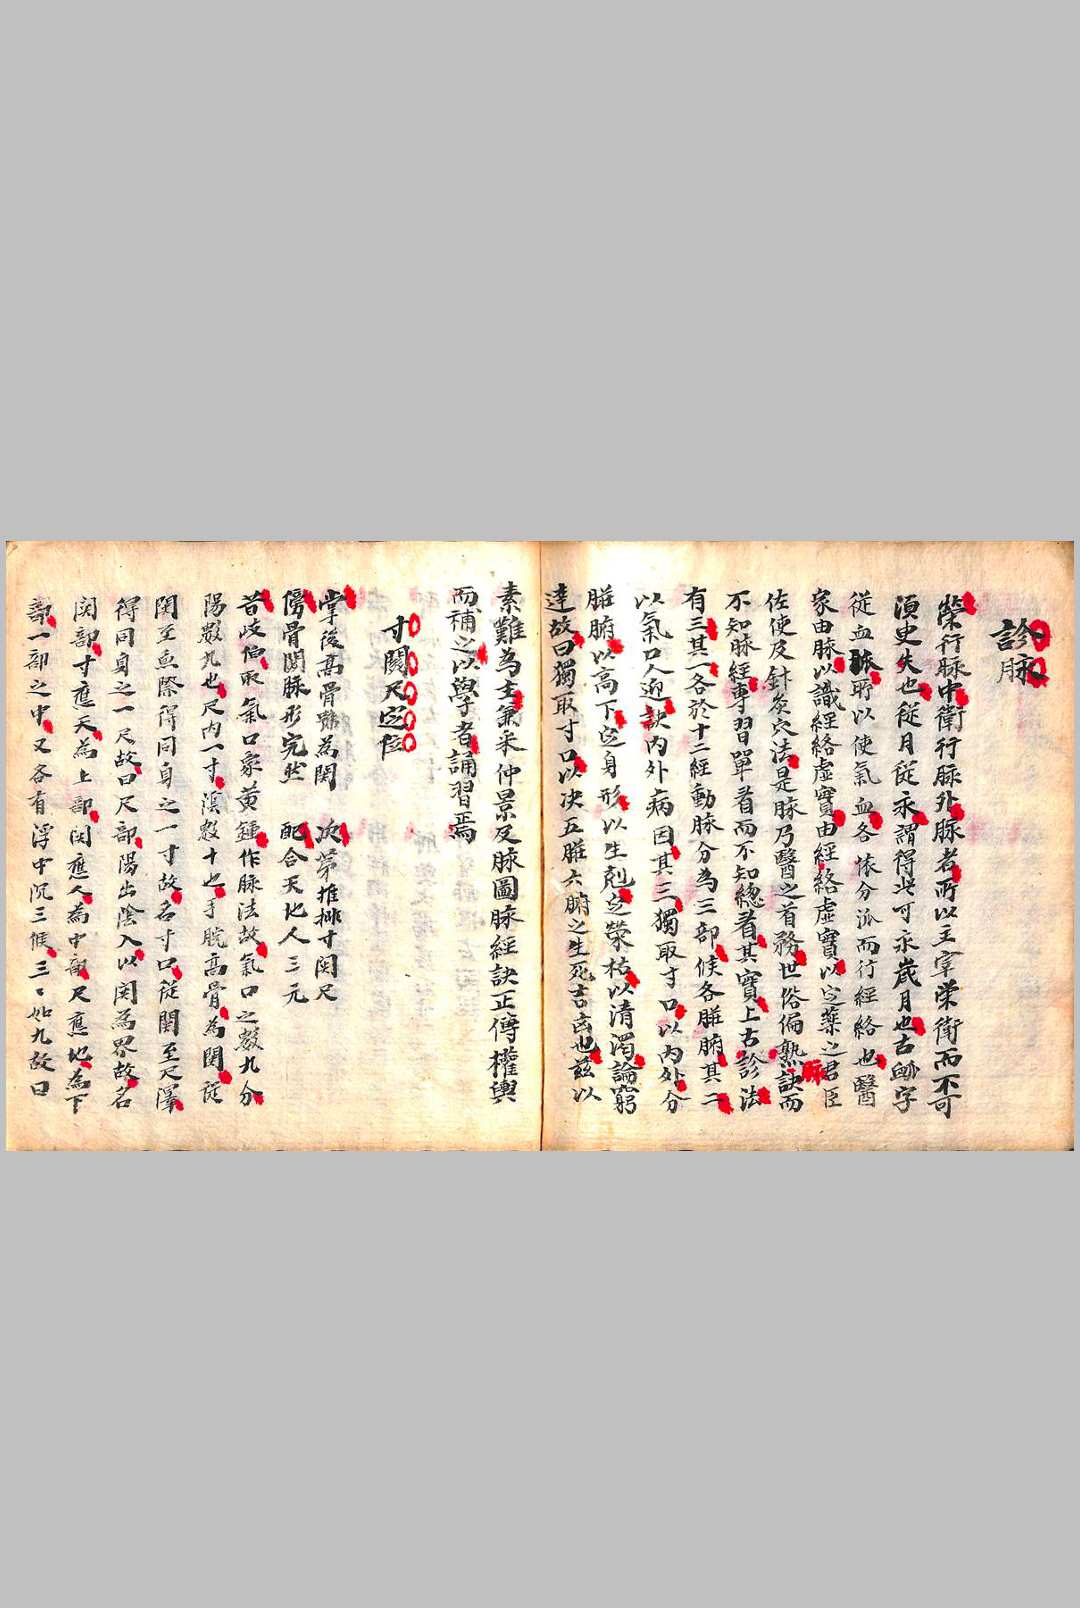 診脉
榮行脉中衛行脉外脉者所以主宰榮衛而不可
湏臾失也従月従永謂得此可永歲月也古䘑字
従血𠂢所以使氣血各依分派而行經絡也醫
家由脉以識經絡虛實由經絡虛實以定藥之君臣
佐使及針灸穴法是脉乃醫之首務世俗偏熟脉訣而
不知脉經專習單看而不知總看其實上古診法
有三其一各於十二經動脉分為三部候各臟腑其二
以氣口人迎訣內外病因其三獨取寸口以內外分
臟腑以高下定身形以生剋定榮枯以清濁論窮
達故曰獨取寸口以决五臟六腑之生死吉凶也茲以
素難為主兼采仲景及脉圖脉經訣正傳權輿
而補之以學者誦習焉
寸關尺定位
掌後高骨號為関 次第推排寸関尺
傍骨關脉形完然 配合天地人三元
昔歧伯取氣口象黄鍾作脉法故氣口之數九分
陽數九也尺內一寸隂數十也手腕高骨為関従
関至魚際得同身之一寸故名寸口従関至尺澤
得同身之一尺故曰尺部陽出陰入以関為界故名
関部寸應天為上部関應人為中部尺應地為下
部一部之中又各有浮中沉三候三〻如九故曰